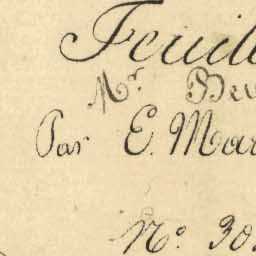 Feuill
Mr. Beu
Par E. Mar
No. 30